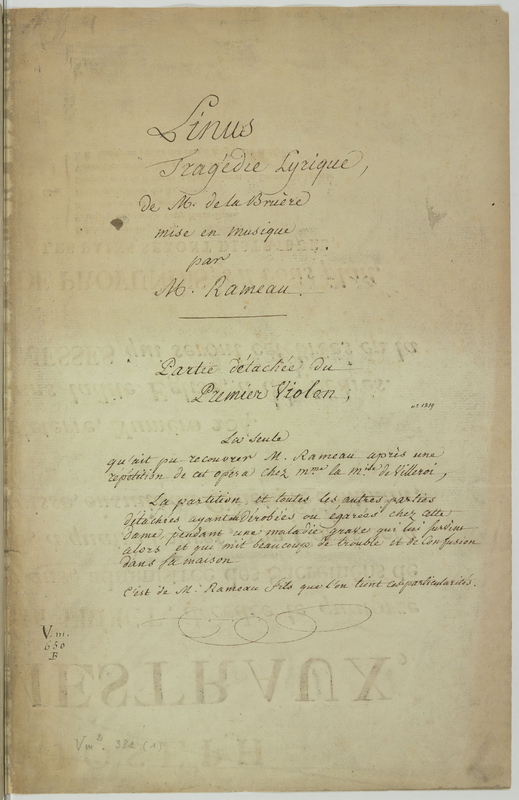 Linus
Tragédie Lyrique,
de Mr. de la Bruère
mise en musique
par
M. Rameau.
Partie détachée du
Premier Violon,
n° 1219
La seule
qu'ait pu recouvrer M. Rameau après une
répétition de cet opéra chez mme la mise de Villeroi,
La partition et toutes les autres parties
détachées ayant été dérobées ou égarées chez cette
Dame, pendant une maladie grave qui lui survint
alors et qui mit beaucoup de trouble et de confusion
dans sa maison.
C'est de M. Rameau fils que l'on tient ces particularités.
Vm.
650
F
Vm2. 382 (1)